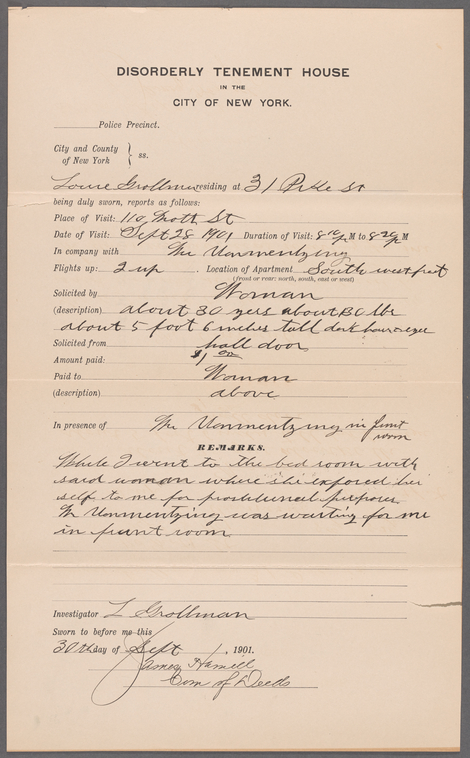 DISORDERLY TENEMENT HOUSE
IN THE
CITY OF NEW YORK.
Police Precinct.
City and County
of New York } ss.
Louie Grollman residing at 31 Pike St
being duly sworn, reports as follows:
Place of Visit: 110 Mott St
Date of Visit: Sept 28 1901 Duration of Visit: 8 10 P M to 8 20 P M
In company with Mr Unmentzing
Flights up: 2 up Location of Apartment South west frt
(front or rear: north, south, east or west)
Solicited by Woman
(description) about 30 yers about 130 lbs
about 5 foot 6 inches tall dark hair & eyes
Solicited from hall door
Amount paid: $1 00
Paid to Woman
(description) above
In presence of Mr Unmentzing in frunt
room
REMARKS.
While I went to the bed room with
said woman where she exposed her
self to me for prostitucal purposes
Mr Unmentzing was waiting for me
in frunt room
Investigator L Grollman
Sworn to before me this
30th day of Sept, 1901.
James Hamill
Com of Deeds